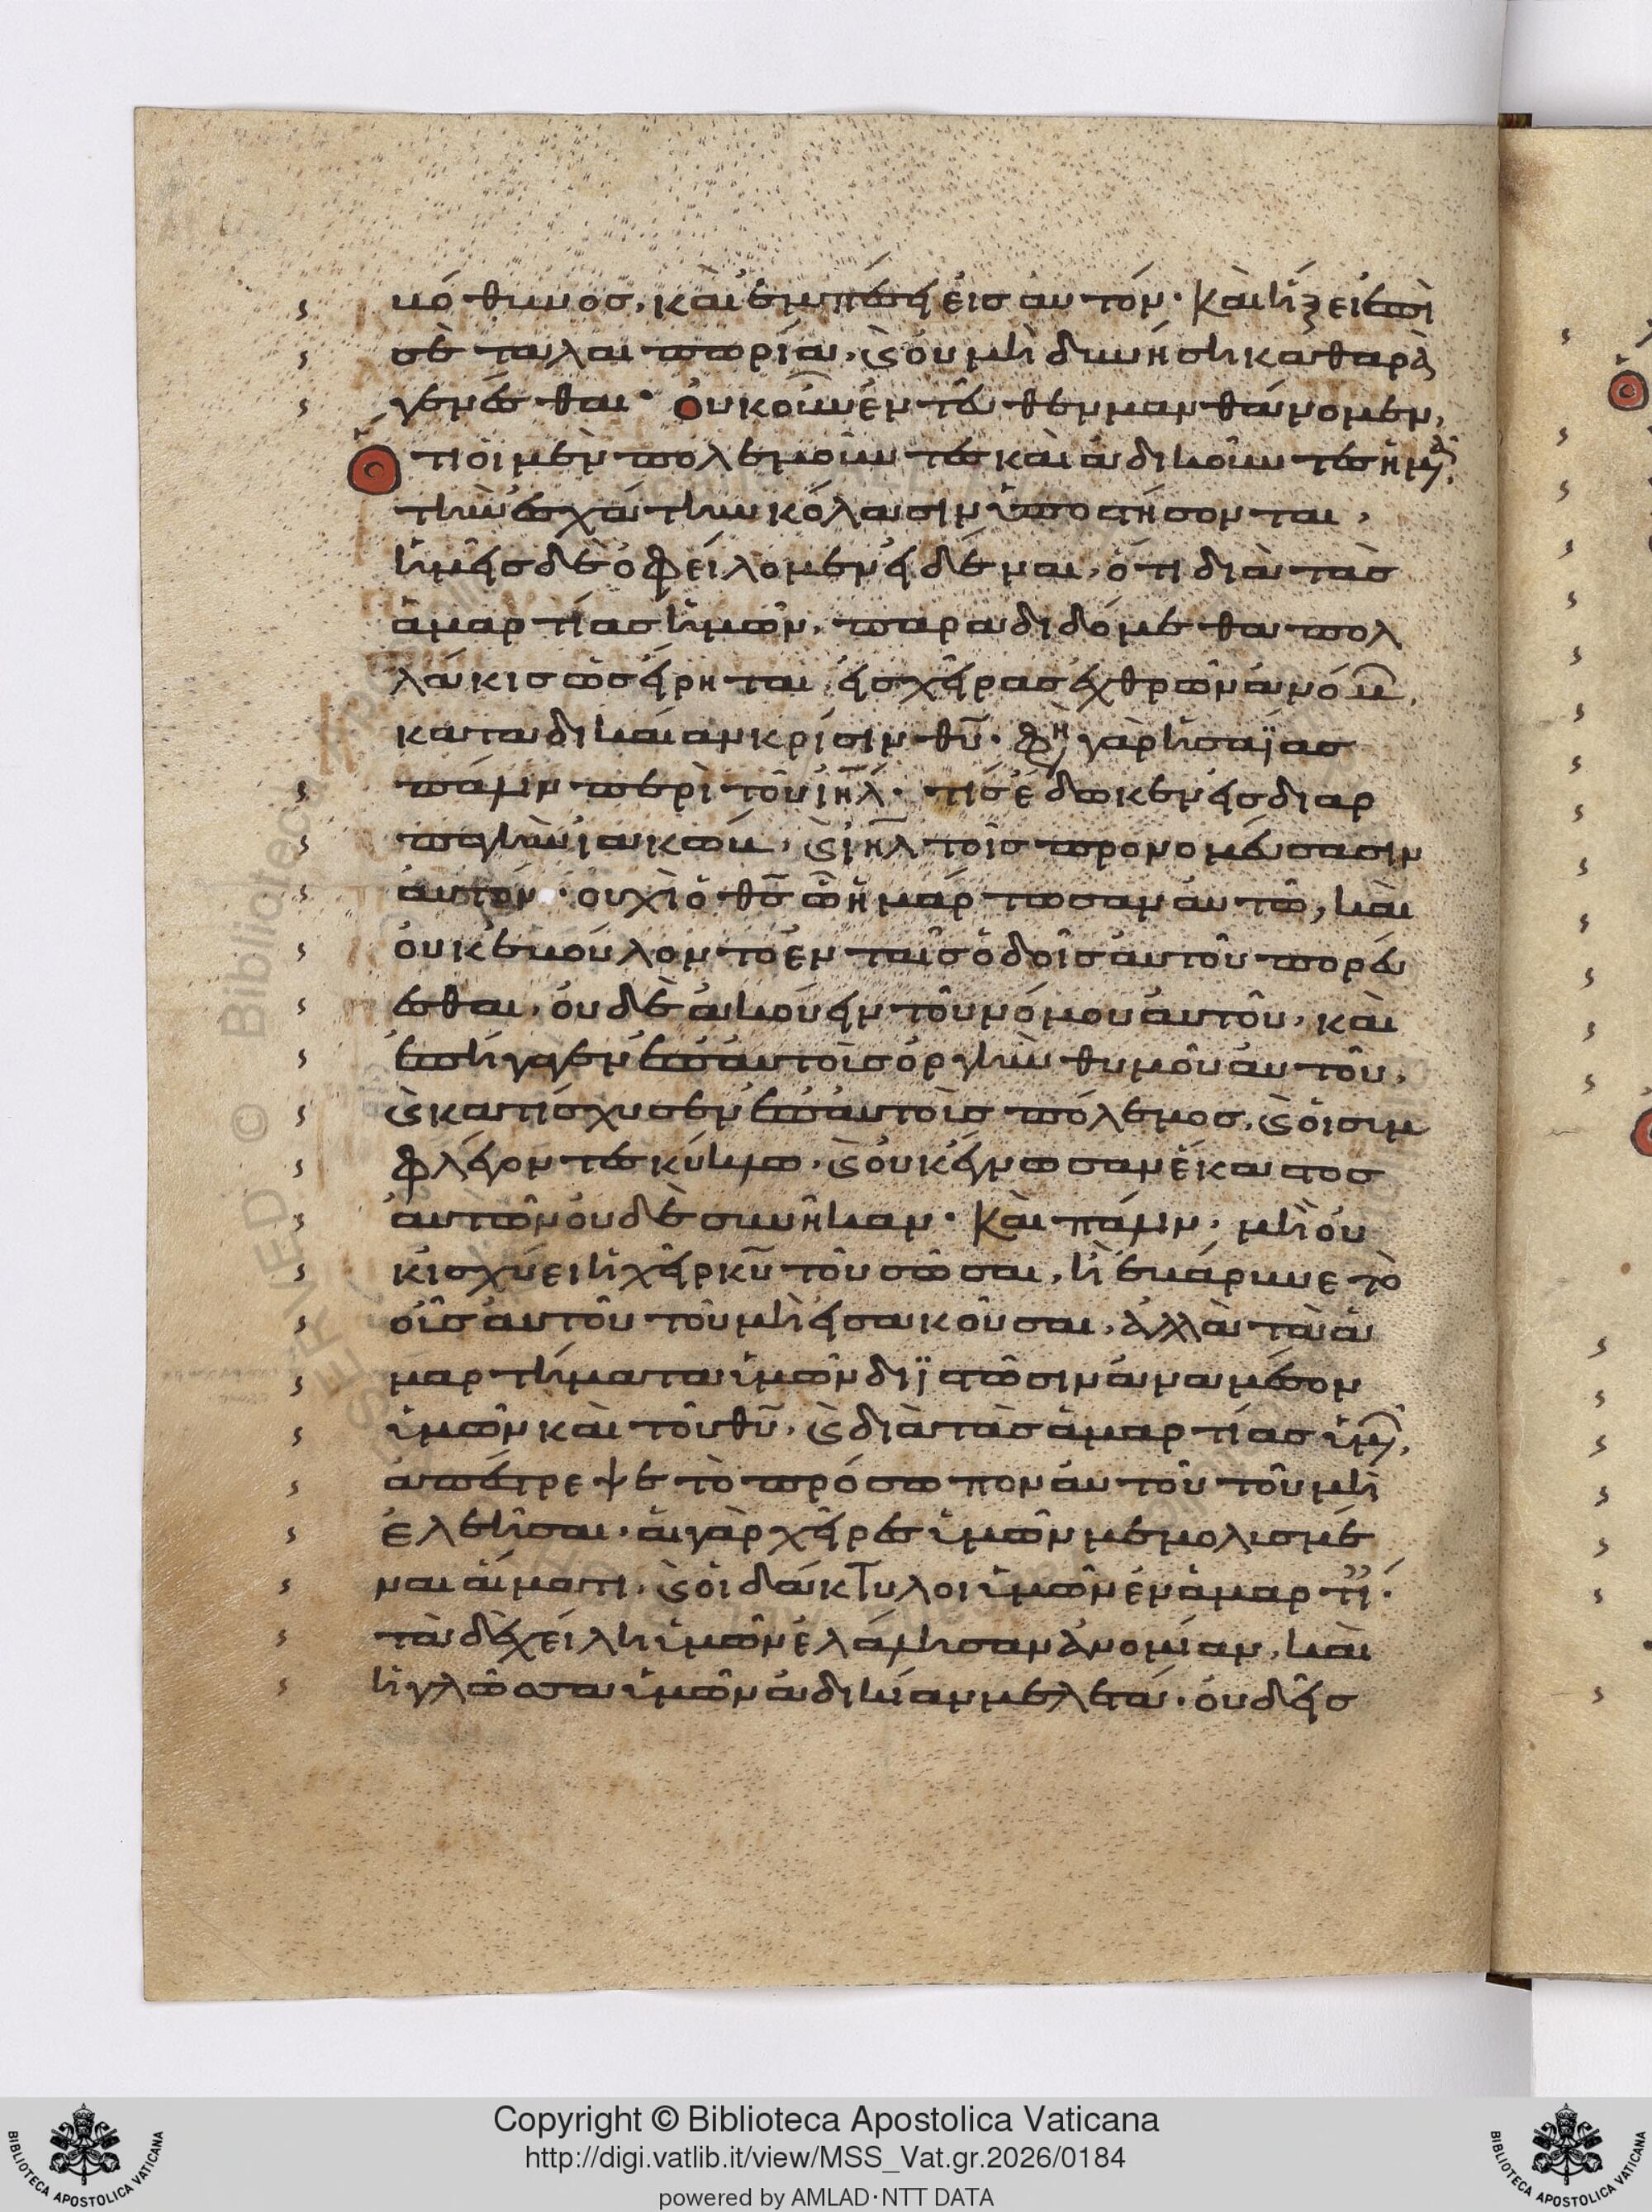 βόθυνος, καὶ ἐμπέσῃ εἰς αυτόν· Καὶ ἥξει ἐπὶ
σὲ ταλαιπωρία, ϗ ου μὴ δυνήση καθαρὰ
γενέσθαι· Ουκοῦν ἐντεῦθεν μανθάνομεν,
Ὅτι οἱ μὲν πολεμοῦντες καὶ ἀδικοῦντες ἡμᾶς,
τὴν ἐσχάτην κόλασιν ὑποστήσονται,
ἡμεῖς δὲ ὀφείλομεν εἰδέναι, ὅτι διὰ τὰς
ἁμαρτίας ἡμῶν, παραδιδόμεθα πολ
λάκις ὡς εἴρηται, εἰς χεῖρας ἐχθρῶν ἀνόμων,
κατὰ δικαίαν κρίσιν θυ· φη γὰρ ἡσαΐας
πάλιν περὶ τοῦ ιηλ· τίς ἔδωκεν εἰς διαρ
παγὴν ιακώβ, ϗ ιηλ τοῖς προνομεύσασιν
αὐτόν· ουχὶ ὁ θς ᾧ ἡμάρτωσαν αὐτῶ, καὶ
οὐκ ἐβούλοντο ἐν ταῖς ὁδοῖς αὐτοῦ πορεύ
εσθαι, οὐδὲ ἀκούειν τοῦ νόμου αὐτοῦ, καὶ
ἐπήγαγεν ἐπ' αὐτοῖς ὀργὴν θυμοῦ αὐτοῦ,
ϗ κατίσχυσεν ἐπ' αὐτοῖς πόλεμος, ϗ οἱ συμ
φλέγοντες κύκλω, ϗ οὐκ ἔγνωσαν ἕκαστος
αὐτῶν οὐδὲ συνῆκαν· Καὶ πάλιν, μὴ οὐ
κ ισχύει ἡ χεὶρ κυ τοῦ σῶσαι, ἢ ἐβάρυνε τὸ
οὖς αὐτοῦ τοῦ μὴ εἰσακοῦσαι, ἀλλὰ τὰ ἁ
μαρτήματα ὑμῶν διϊστῶσιν ἀνα μέσον
ὑμῶν καὶ τοῦ θυ, ϗ διὰ τὰς ἁμαρτίας ὑμῶν,
ἀπέστρεψε τὸ πρόσωπον αὐτοῦ τοῦ μὴ
ἐλεῆσαι· αἱ γὰρ χεῖρες ὑμῶν μεμολυσμέ
ναι αἵματι, ϗ οἱ δάκτυλοι ὑμῶν ἐν ἁμαρτί·
τὰ δὲ χείλη ὑμῶν ἐλάλησαν ἀνομίαν, καὶ
ἡ γλῶσσα ὑμῶν ἀδικίαν μελετᾶ· οὐδεὶς
Copyright © Biblioteca Apostolica Vaticana
http://digi.vatlib.it/view/MSS_Vat.gr.2026/0184
powered by AMLAD·NTT DATA